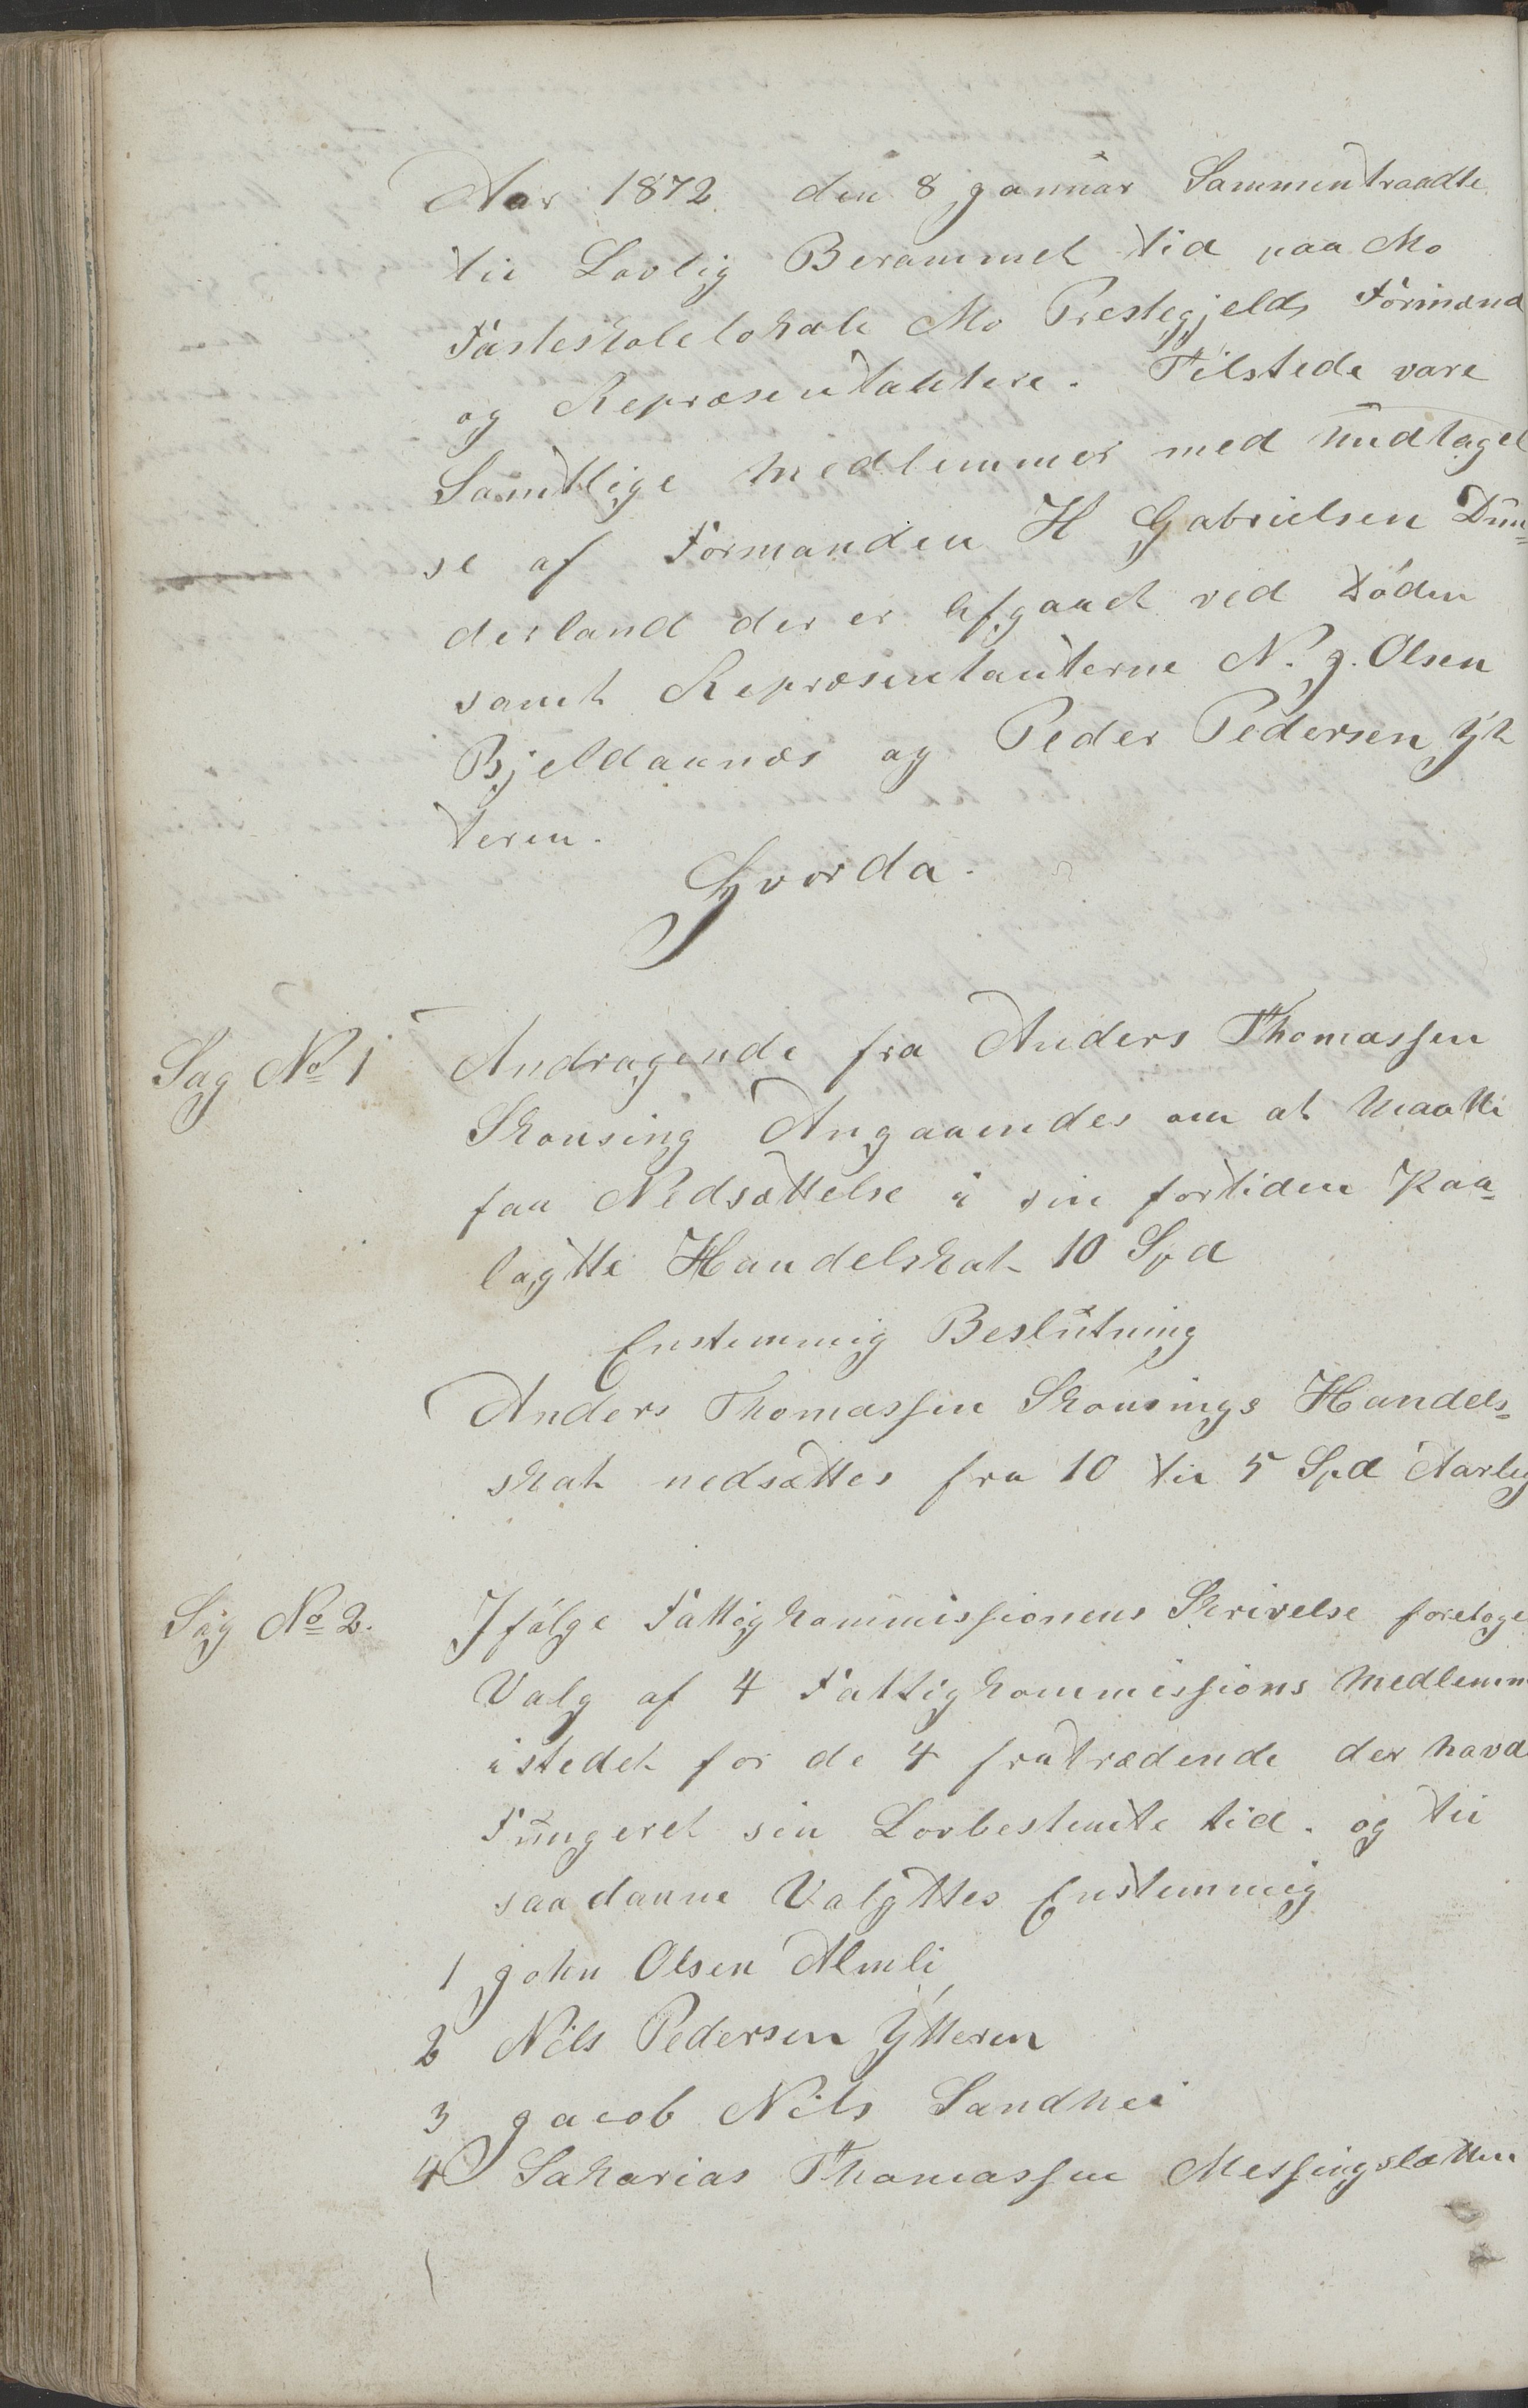 Aar 1872 den 8 januar Sammentraadte
til Lovlig Berammet tid paa Mo
Fasteskolelokale Mo Prestegjelds Formænd
og Repræsentantere. Tilstede vare
Samtlige Medlemmer med undtagel
se af Formanden H Gabrielsen Dun=
derland der er Afgaaet ved Döden
samt Repræsentanterne N. J. Olsen
Bjeldaanæs og Peder Pedersen Yt
teren.
Hvorda.
Sag No 1 Andragende fra Anders Thomassen
Skonsing Angaaendes om at Maatte
faa Nedsættelse i sin fortiden Paa=
lagtte Handelskat 10 Spd
Enstemmig Beslutning
Anders Thomassen Skonsings Handels=
skat nedsættes fra 10 til 5 Spd Aarlig
Sag No 2. Ifølge Fattigkommissionens Skrivelse foretoge
Valg af 4 Fattigkommissions Medlemm
istedet for de 4 fratrædende der havd
Fungeret sin Lovbestemte tid. og til
saadanne Valgttes Enstemmig
1 John Olsen Almli
2 Nils Pedersen Ytteren
3 Jacob Nils Sandhei
4 Sakarias Thomassen Messingslætten